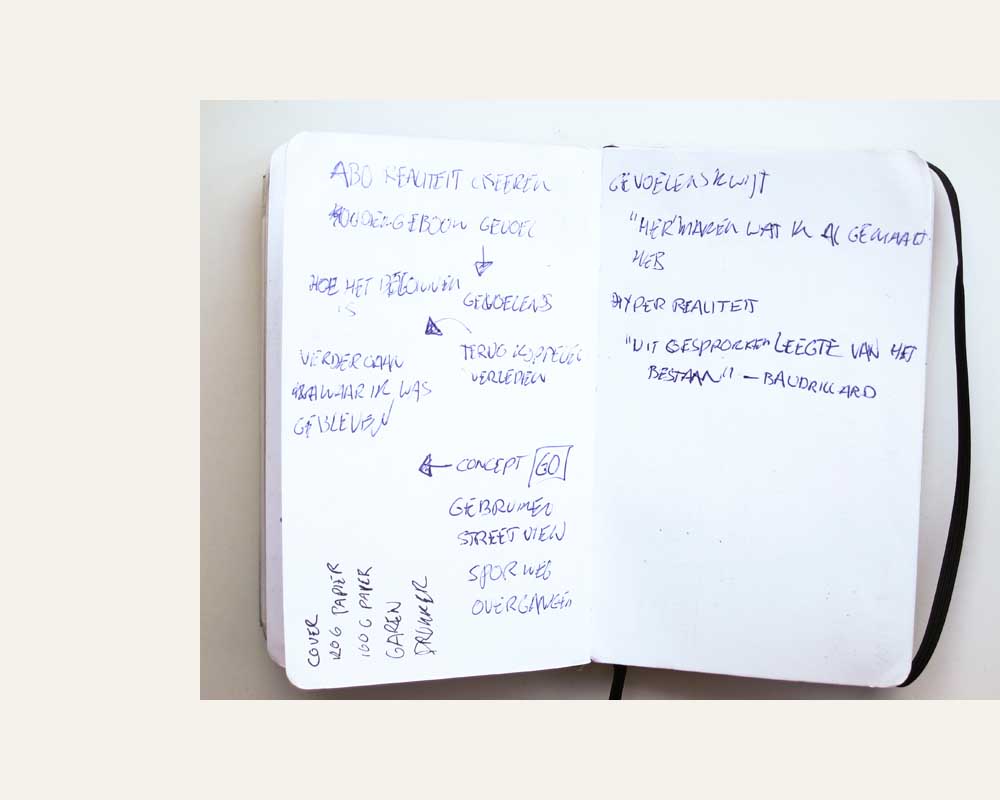 REALITEIT
GEVOEL
HOE HET BEGONNEN
IS
GEVOELENS
VERDER GAAN
WAAR IK WAS
GEBLEVEN
TERUG KOPPELEN
VERLEDEN
CONCEPT GO
GEBRUIKEN
STREET VIEW
SPOORWEG
OVERGANGEN
COVER
120 G PAPIER
160 G PAPIER
GAREN
DRUKKER
GEVOELENSKWIJT
"HERMAKEN WAT IK AL GEMAAKT
HEB
HYPER REALITEIT
"UIT GESPROKEN LEEGTE VAN HET
BESTAAN" — BAUDRILLARD